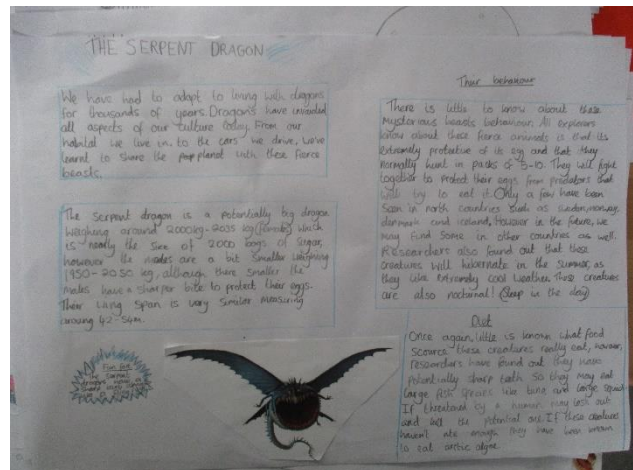 THE SERPENT DRAGON
We have had to adapt to living with dragons
for thousands of years. Dragons have invaded
all aspects of our culture today. From our
habitat we live in to the cars we drive, we've
learnt to share the planet with these fierce
beasts.
The serpent dragon is a potentially big dragon
weighing around 2000kg-2035 kg (female) which
is nearly the size of 2000 bags of sugar,
however the males are a bit smaller weighing
1950-2030 kg, although there smaller the
males have a sharper bite to protect their eggs.
Their wing span is very similar measuring
around 42-54m.
Fun fact
The Serpent
Their behaviour
There is little to know about these
mysterious beasts behaviour. All explorers
know about these fierce animals is that its
extremely protective of its egg and that they
normally hunt in packs of 5-10. They will fight
together to protect their eggs from predators that
will try to eat it. Only a few have been
seen in north countries such as sweden, norway,
denmark and iceland, however in the future, we
may find some in other countries as well.
Researchers also found out that these
creatures will hibernate in the summer, as
they like extremely cool weather. These creatures
are also nocturnal! (Sleep in the day)
Diet
Once again, little is known what food
scource these creatures really eat, however,
researchers have found out they have
potentially sharp teeth so they may eat
large fish species like tuna and large squid.
If threatened by a human may lash out
and
If these creatures
haven't ate enough they have been known
to eat arctic algae.